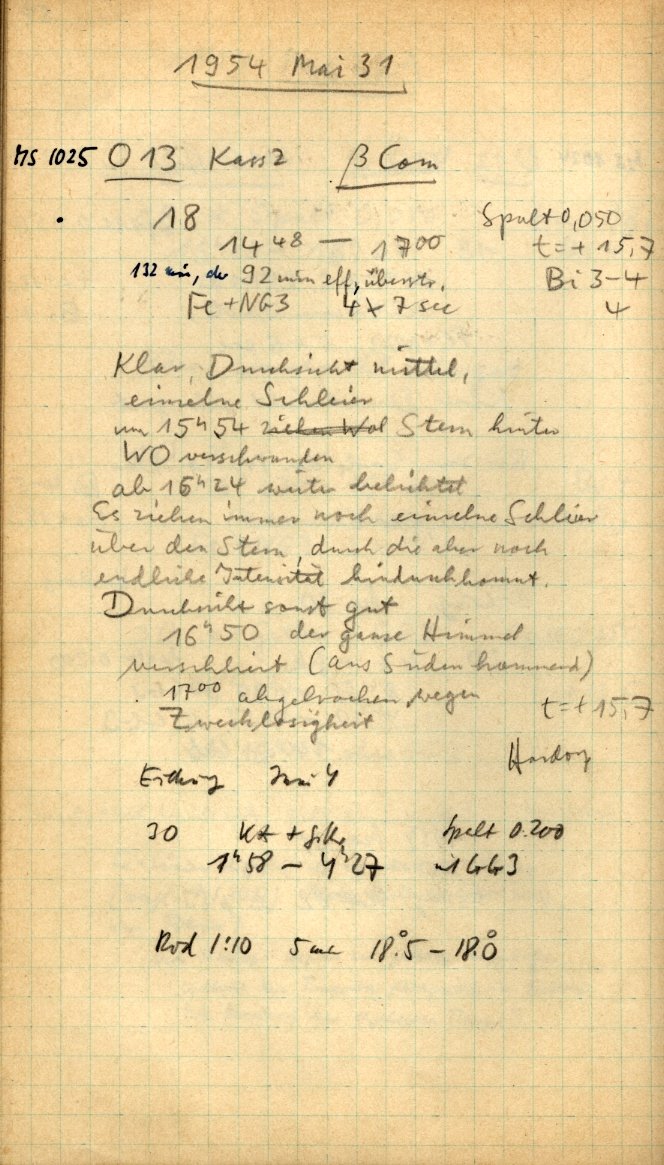 1954 Mai 31
MS 1025 O 13 Kass 2 β Com
18 Spalt 0,050
14 48 — 17 00 t = + 15,7
132 min, 92 min eff, überstr. Bi 3-4
Fe + NG3 4 x 7 sec 4
Klar, Durchsicht mittel,
einzelne Schleier
um 15h 54 ziehen Wol Stern hinter
WO verschwunden
ab 16h 24 weiter belichtet
Es ziehen immer noch einzelne Schleier
über den Stern, durch die aber noch
endliche Intensität hindurchkommt.
Durchsicht sonst gut
16h 50 der ganze Himmel
verschliert (aus Süden kommend)
17 00 abgebrochen wegen
Zwecklosigkeit t = + 15,7
Eichung Juni 4
30 Spalt 0.200
1h 58 — 4h 27
Rod 1:10 5 min 18°.5 — 18°.0